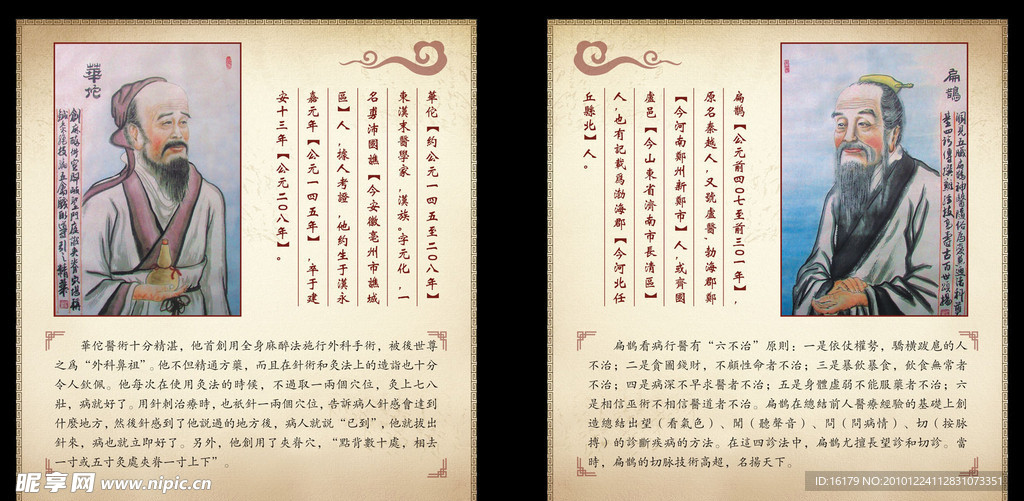 華佗
華佗【約公元一四五至二〇八年】
東漢末醫學家，漢族。字元化，一
名旉沛國譙【今安徽亳州市譙城
區】人，據人考證，他約生于漢永
嘉元年【公元一四五年】，卒于建
安十三年【公元二〇八年】。
華佗醫術十分精湛，他首創用全身麻醉法施行外科手術，被後世尊
之爲“外科鼻祖”。他不但精通方藥，而且在針術和灸法上的造詣也十分
令人欽佩。他每次在使用灸法的時候，不過取一兩個穴位，灸上七八
壯，病就好了。用針刺治療時，也衹針一兩個穴位，告訴病人針感會達到
什麽地方，然後針感到了他説過的地方後，病人就説“已到”，他就拔出
針來，病也就立即好了。另外，他創用了夾脊穴，“點背數十處，相去
一寸或五寸灸處夾脊一寸上下”。
扁鵲
扁鵲【公元前四〇七至前三〇一年】，
原名秦越人，又號盧醫，勃海郡鄭
【今河南鄭州新鄭市】人，或齊國
盧邑【今山東省濟南市長清區】
人，也有記載爲渤海郡【今河北任
丘縣北】人。
扁鵲看病行醫有“六不治”原則：一是依仗權勢，驕橫跋扈的人
不治；二是貪圖錢財，不顧性命者不治；三是暴飲暴食，飲食無常者
不治；四是病深不早求醫者不治；五是身體虛弱不能服藥者不治；六
是相信巫術不相信醫道者不治。扁鵲在總結前人醫療經驗的基礎上創
造總結出望（看氣色）、聞（聽聲音）、問（問病情）、切（按脈
搏）的診斷疾病的方法。在這四診法中，扁鵲尤擅長望診和切診。當
時，扁鵲的切脉技術高超，名揚天下。
昵享网 www.nipic.cn
ID:16179 NO:20101224112831073351